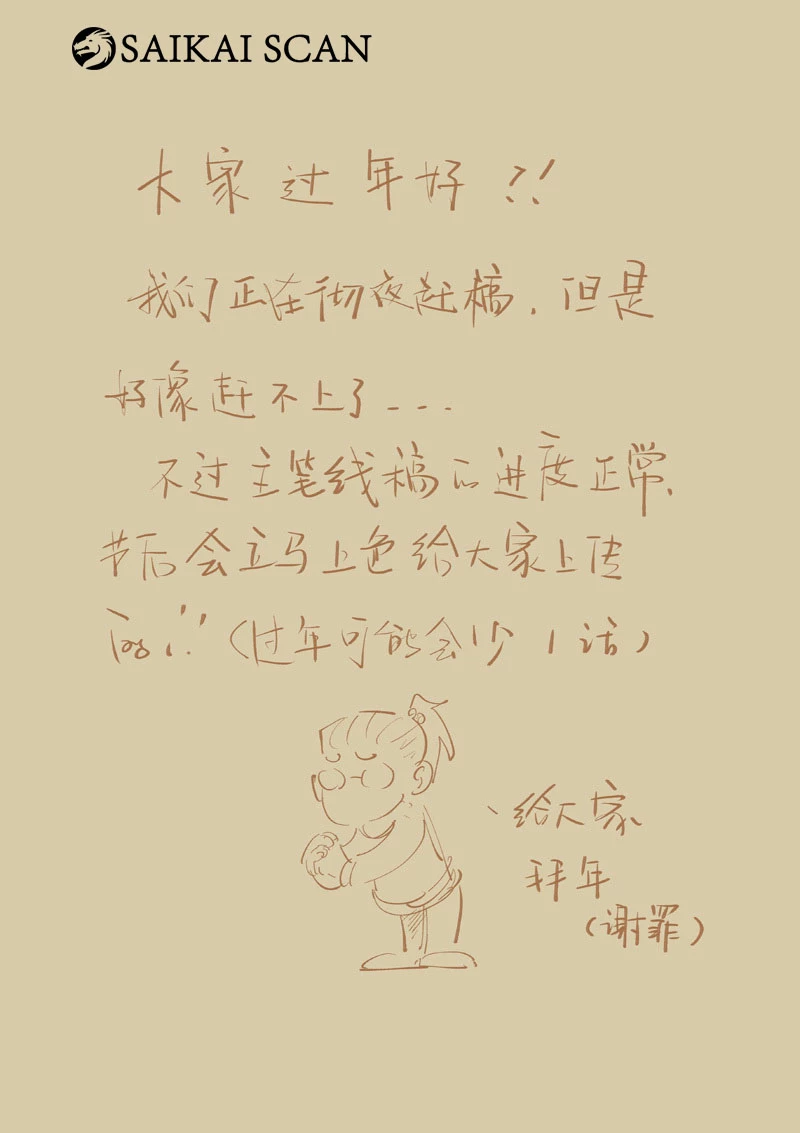 SAIKAI SCAN
大家过年好!!
我们正在彻夜赶稿,但是
好像赶不上了---
不过主笔线稿的进度正常,
节后会立马上色给大家上传
的!!(过年可能会少1话)
、给大家
拜年
(谢罪)